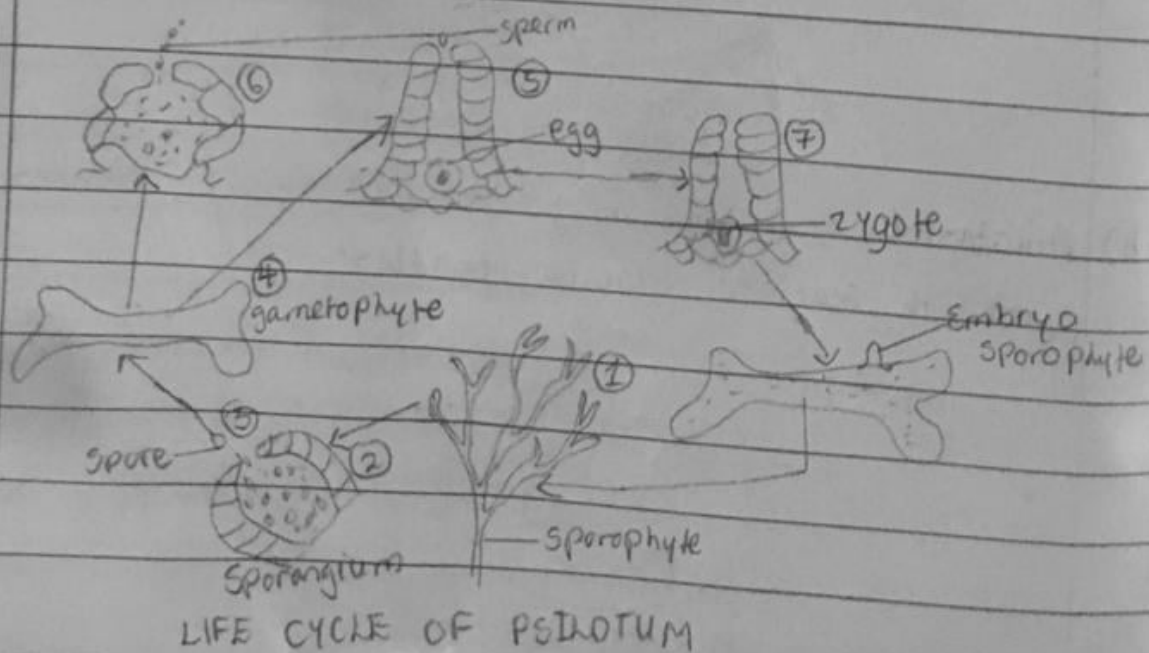 sperm
⑥
⑤
egg
⑦
zygote
④
gametophyte
Embryo
sporophyte
①
③
spore
②
sporophyte
sporangium
LIFE CYCLE OF PSILOTUM